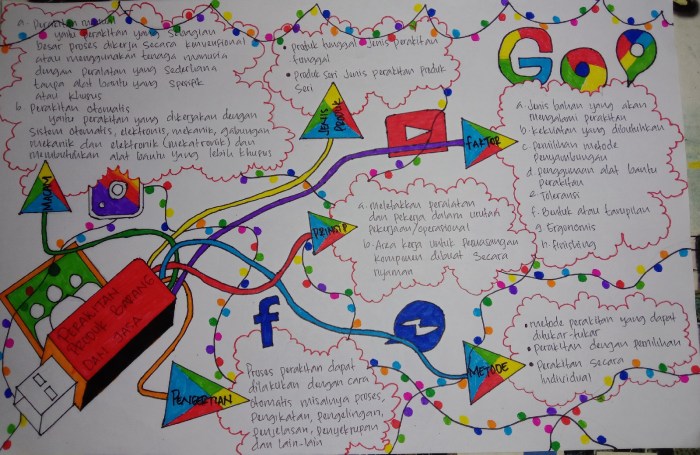 a. Perakitan manual
yaitu perakitan yang sebagian
besar proses dikerja secara konvensional
atau menggunakan tenaga manusia
dengan peralatan yang sederhana
tanpa alat bantu yang spesifik
atau khusus
b. Perakitan otomatis
yaitu perakitan yang dikerjakan dengan
sistem otomatis, elektronis, mekanik, gabungan
mekanik dan elektronik (mekatronik) dan
membutuhkan alat bantu yang lebih khusus
MACAM
• Produk tunggal jenis perakitan
tunggal
• Produk seri jenis perakitan produk
seri
JENIS
PRODUK
GOO
FAKTOR
a. Jenis bahan yang akan
mengalami perakitan
b. kekuatan yang dibutuhkan
c. pemilihan metode
penyambungan
d. penggunaan alat bantu
perakitan
e. Toleransi
f. Bentuk atau tampilan
g. Ergonomis
h. finishing
PRINSIP
a. meletakkan peralatan
dan pekerja dalam urutan
pekerjaan/operasional
b. Area kerja untuk pemasangan
komponen dibuat secara
nyaman
PERAKITAN
PRODUK BARANG
DAN JASA
f
METODE
• metode perakitan yang dapat
ditukar-tukar
• Perakitan dengan pemilihan
• Perakitan secara
Individual
PENGERTIAN
Proses perakitan dapat
dilakukan dengan cara
otomatis misalnya proses,
Pengikatan, pengelingan,
penjelasan, penyekrupan
dan lain-lain